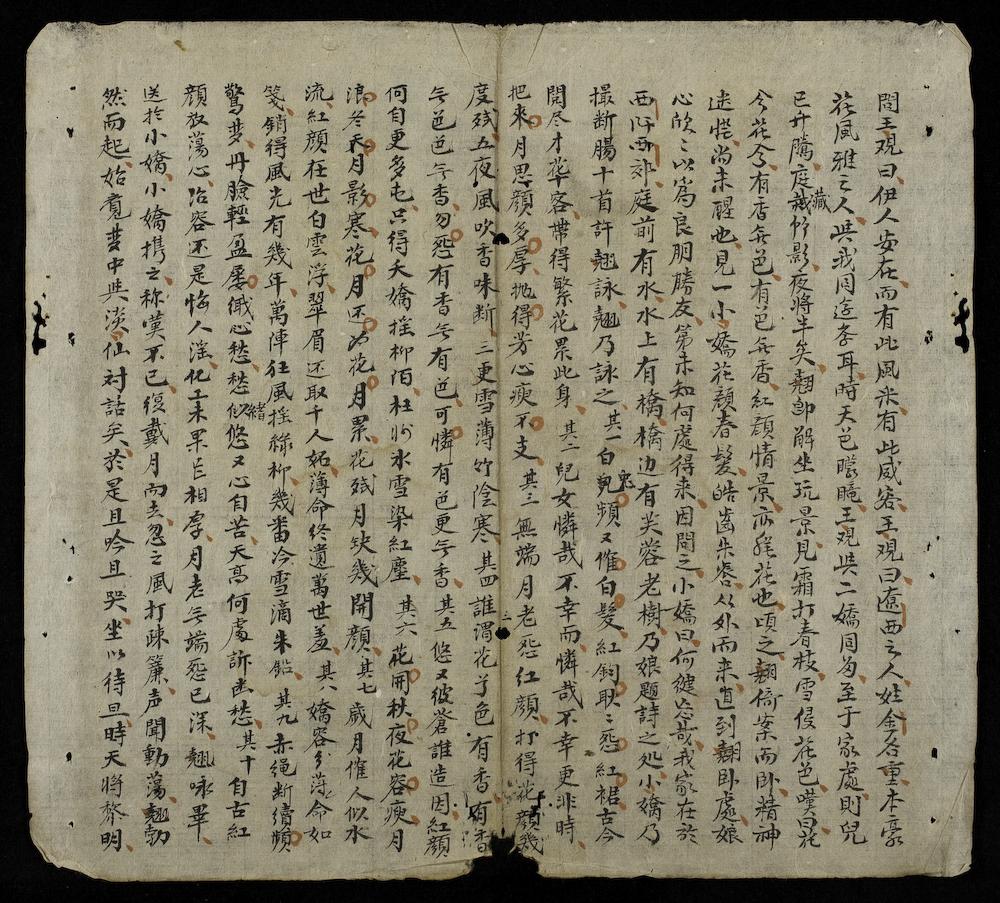 問王观曰伊人安在而有此風采有此威容王观曰遼西之人姓金名重本豪
花風雅之人與我同遊李耳時天色曚曨王观與二嬌同至于家處則兒
已升騰庭藏竹影夜將半矣翹卽解坐玩景見霜打春枝雪侵花色嘆曰花
今花今有香无色有色无香紅顔情景亦猶花也頃之翹倚案而卧精神
迷恍尚未醒也見一小嬌花顔春髮皓齒朱唇从外而来直到翹卧處娘
心欣〻以爲良朋勝友第未知何處得来因問之小嬌曰何健忘哉我家在於
西阡西郊庭前有水水上有橋橋边有芙蓉老樹乃娘題詩之处小嬌乃
撮断腸十首許翹詠翹乃詠之其一白鬼頻又催白髮紅鈎耿〻怨紅裙古今
閱尽才華客帶得繁花累此身其二兒女憐哉不幸而憐哉不幸更非時
把來月思顔多厚抛得芳心瘦不支其三無端月老怨紅顔打得花顔幾
度殘五夜風吹香味断三更雪薄竹陰寒其四誰謂花兮色有香有香
无色色无香勿怨有香无有色可憐有色更无香其五悠又彼蒼誰造因紅顔
何自更多屯只得夭嬌摇柳陌枉將氷雪染紅塵其六花開秋夜花容瘦月
浪冬天月影寒花月还为花月累花殘月缺幾開顔其七歲月催人似水
流紅顔在世白雲浮翠眉还取千人妬薄命終遺萬世羞其八嬌容分薄命如
箋銷得風光有幾年萬陣狂風摇綠柳幾番冷雪滴朱鉛其九赤繩断續頻
驚梦丹臉輕盈屡俄心愁愁似緒悠又心自苦天高何處訴幽愁其十自古紅
顔放蕩心冶容还是悔人淫化工未畢㠯相孝月老无端怨已深翹咏畢
送於小嬌小嬌携之称嘆不已復戴月而去忽之風打疎簾声聞動蕩翹動
然而起始覚梦中與淡仙対話矣於是且吟且哭坐以待旦時天將黎明
三